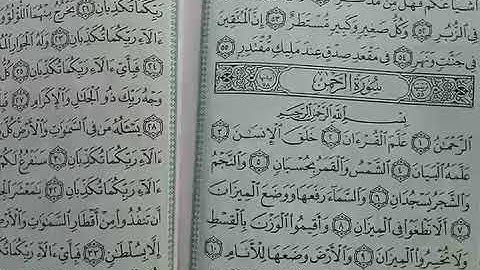 أَشْيَاعَكُمْ فَهَلْ مِن
فِى ٱلزُّبُرِ ٥٢ وَكُلُّ صَغِيرٍ وَكَبِيرٍ مُّسْتَطَرٌ ٥٣ إِنَّ ٱلْمُتَّقِينَ
فِى جَنَّٰتٍ وَنَهَرٍ ٥٤ فِى مَقْعَدِ صِدْقٍ عِندَ مَلِيكٍ مُّقْتَدِرٍۭ ٥٥
سُورَةُ الرَّحْمَٰن
بِسْمِ ٱللَّهِ ٱلرَّحْمَٰنِ ٱلرَّحِيمِ
ٱلرَّحْمَٰنُ ١ عَلَّمَ ٱلْقُرْءَانَ ٢ خَلَقَ ٱلْإِنسَٰنَ ٣
عَلَّمَهُ ٱلْبَيَانَ ٤ ٱلشَّمْسُ وَٱلْقَمَرُ بِحُسْبَانٍ ٥ وَٱلنَّجْمُ
وَٱلشَّجَرُ يَسْجُدَانِ ٦ وَٱلسَّمَآءَ رَفَعَهَا وَوَضَعَ ٱلْمِيزَانَ
٧ أَلَّا تَطْغَوْا۟ فِى ٱلْمِيزَانِ ٨ وَأَقِيمُوا۟ ٱلْوَزْنَ بِٱلْقِسْطِ
وَلَا تُخْسِرُوا۟ ٱلْمِيزَانَ ٩ وَٱلْأَرْضَ وَضَعَهَا لِلْأَنَامِ ١٠
رَبِّكُمَا تُكَذِّبَانِ ٢١ يَخْرُجُ مِنْهُمَا
ءَالَآءِ رَبِّكُمَا تُكَذِّبَانِ ٢٣ وَلَهُ ٱلْجَوَارِ
٢٤ فَبِأَىِّ ءَالَآءِ رَبِّكُمَا تُكَذِّبَانِ ٢٥ كُلُّ
وَجْهُ رَبِّكَ ذُو ٱلْجَلَٰلِ وَٱلْإِكْرَامِ ٢٧
يَسْـَٔلُهُۥ مَن فِى ٱلسَّمَٰوَٰتِ وَٱلْأَرْضِ كُلَّ
ءَالَآءِ رَبِّكُمَا تُكَذِّبَانِ ٣٠ سَنَفْرُغُ لَكُمْ
رَبِّكُمَا تُكَذِّبَانِ ٣٢ يَٰمَعْشَرَ
أَن تَنفُذُوا۟ مِنْ أَقْطَارِ ٱلسَّمَٰوَٰتِ وَٱلْأَرْضِ
إِلَّا بِسُلْطَٰنٍ ٣٣ فَبِأَىِّ ءَالَآءِ رَبِّكُمَا